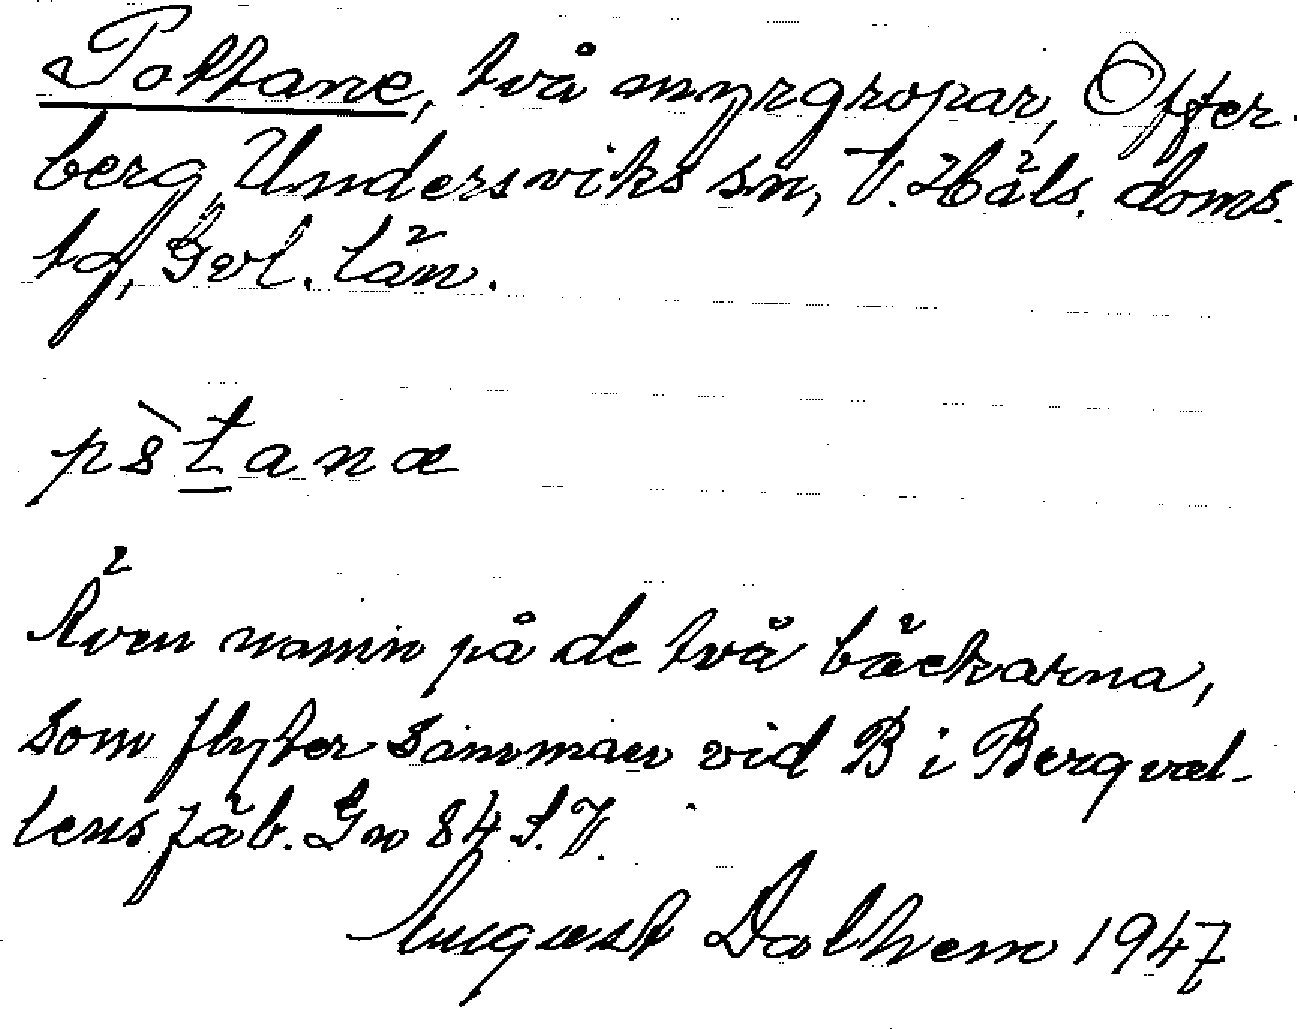 Pottane, två myrgropar, Offer-
berg, Undersviks sn, V. Häls. doms.
tg, Gvl. län.
ps̀tanæ
Även namn på de två bäckarna,
som flyter samman vid B i Bergval-
lens fäb. Gn 84 S.V.
August Dalhem 1947